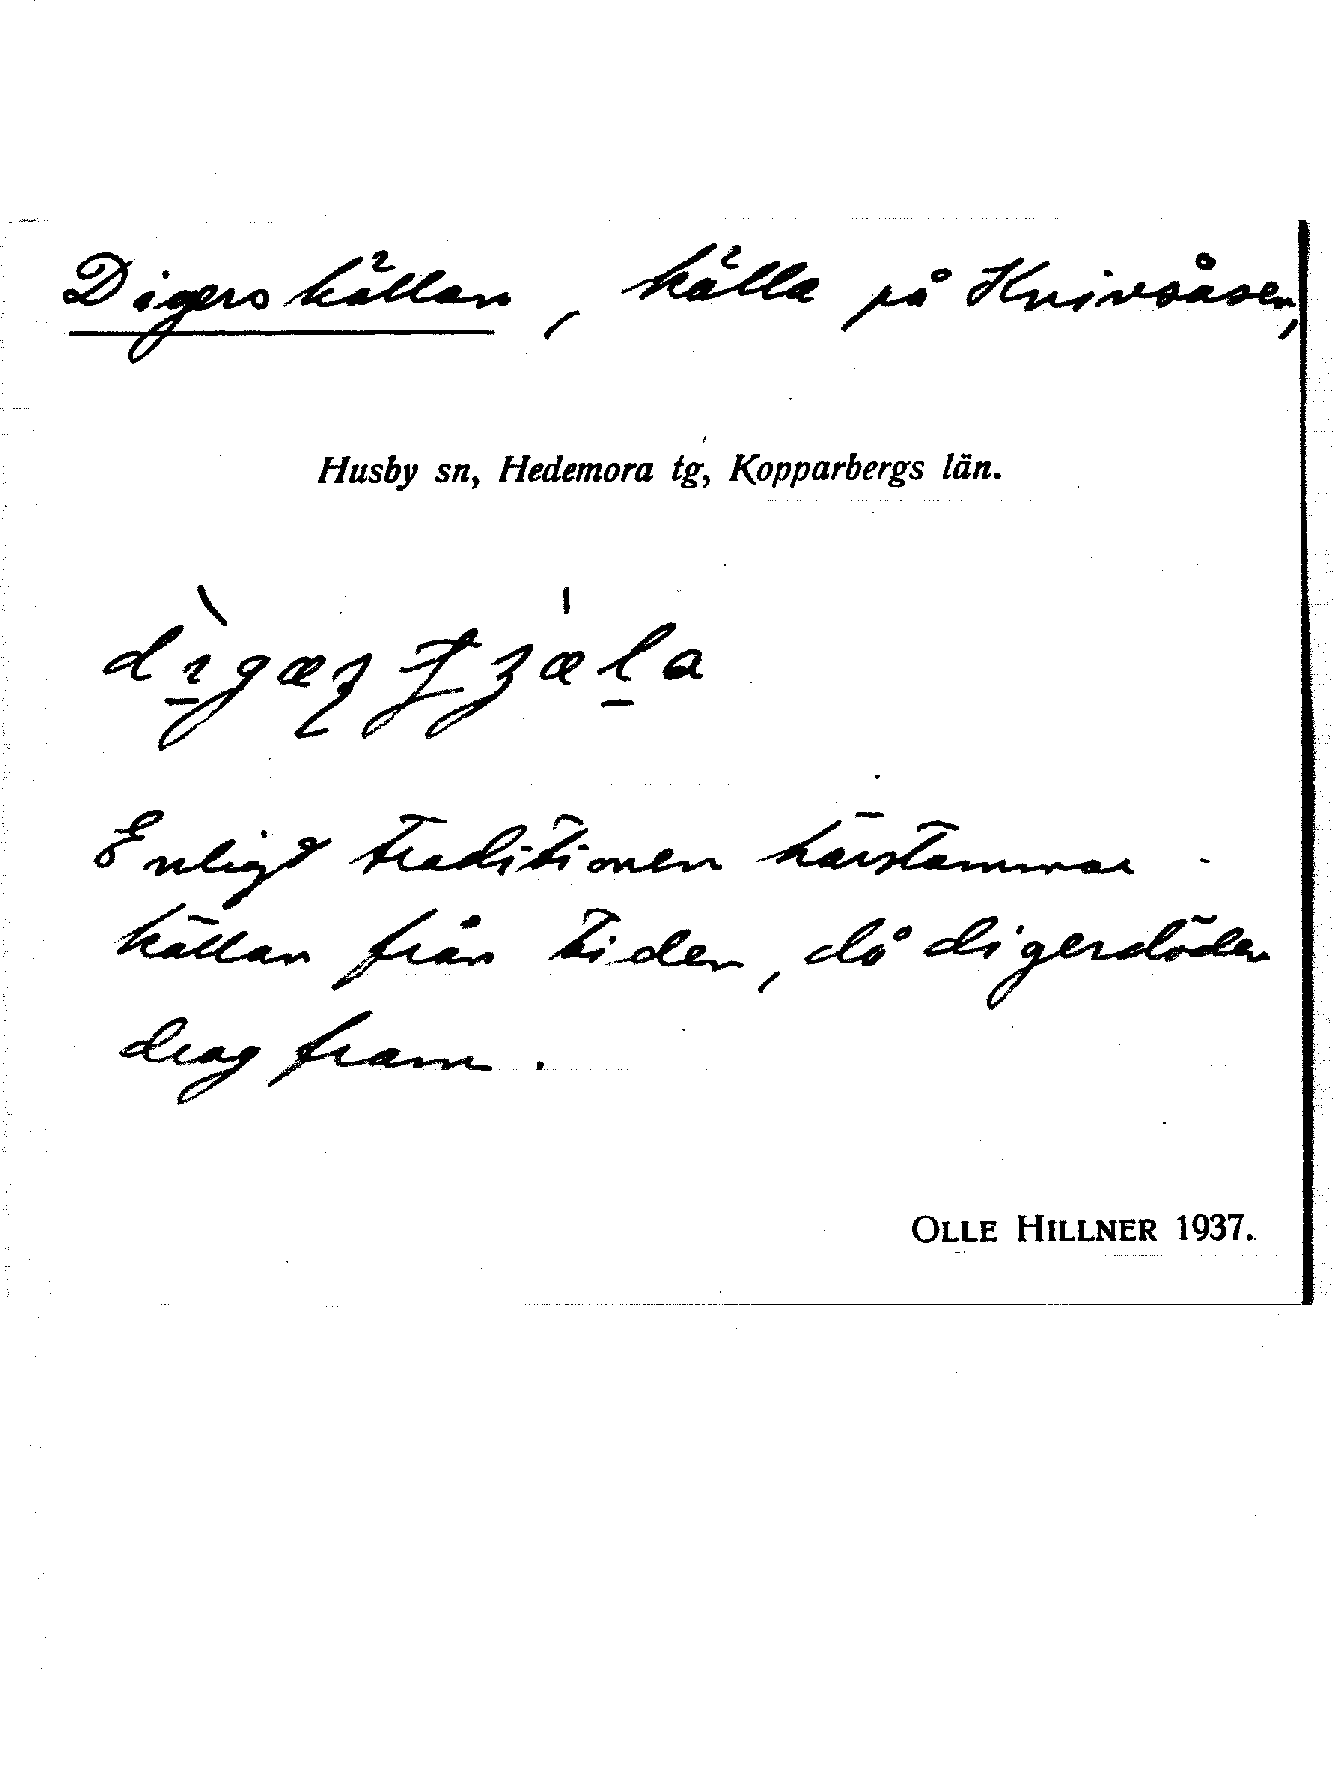 Digerskällan, källa på Knivsåsen,
Husby sn, Hedemora tg, Kopparbergs län.
Enligt traditionen härstammar
källan från tiden, då digerdöden
drog fram.
OLLE HILLNER 1937.